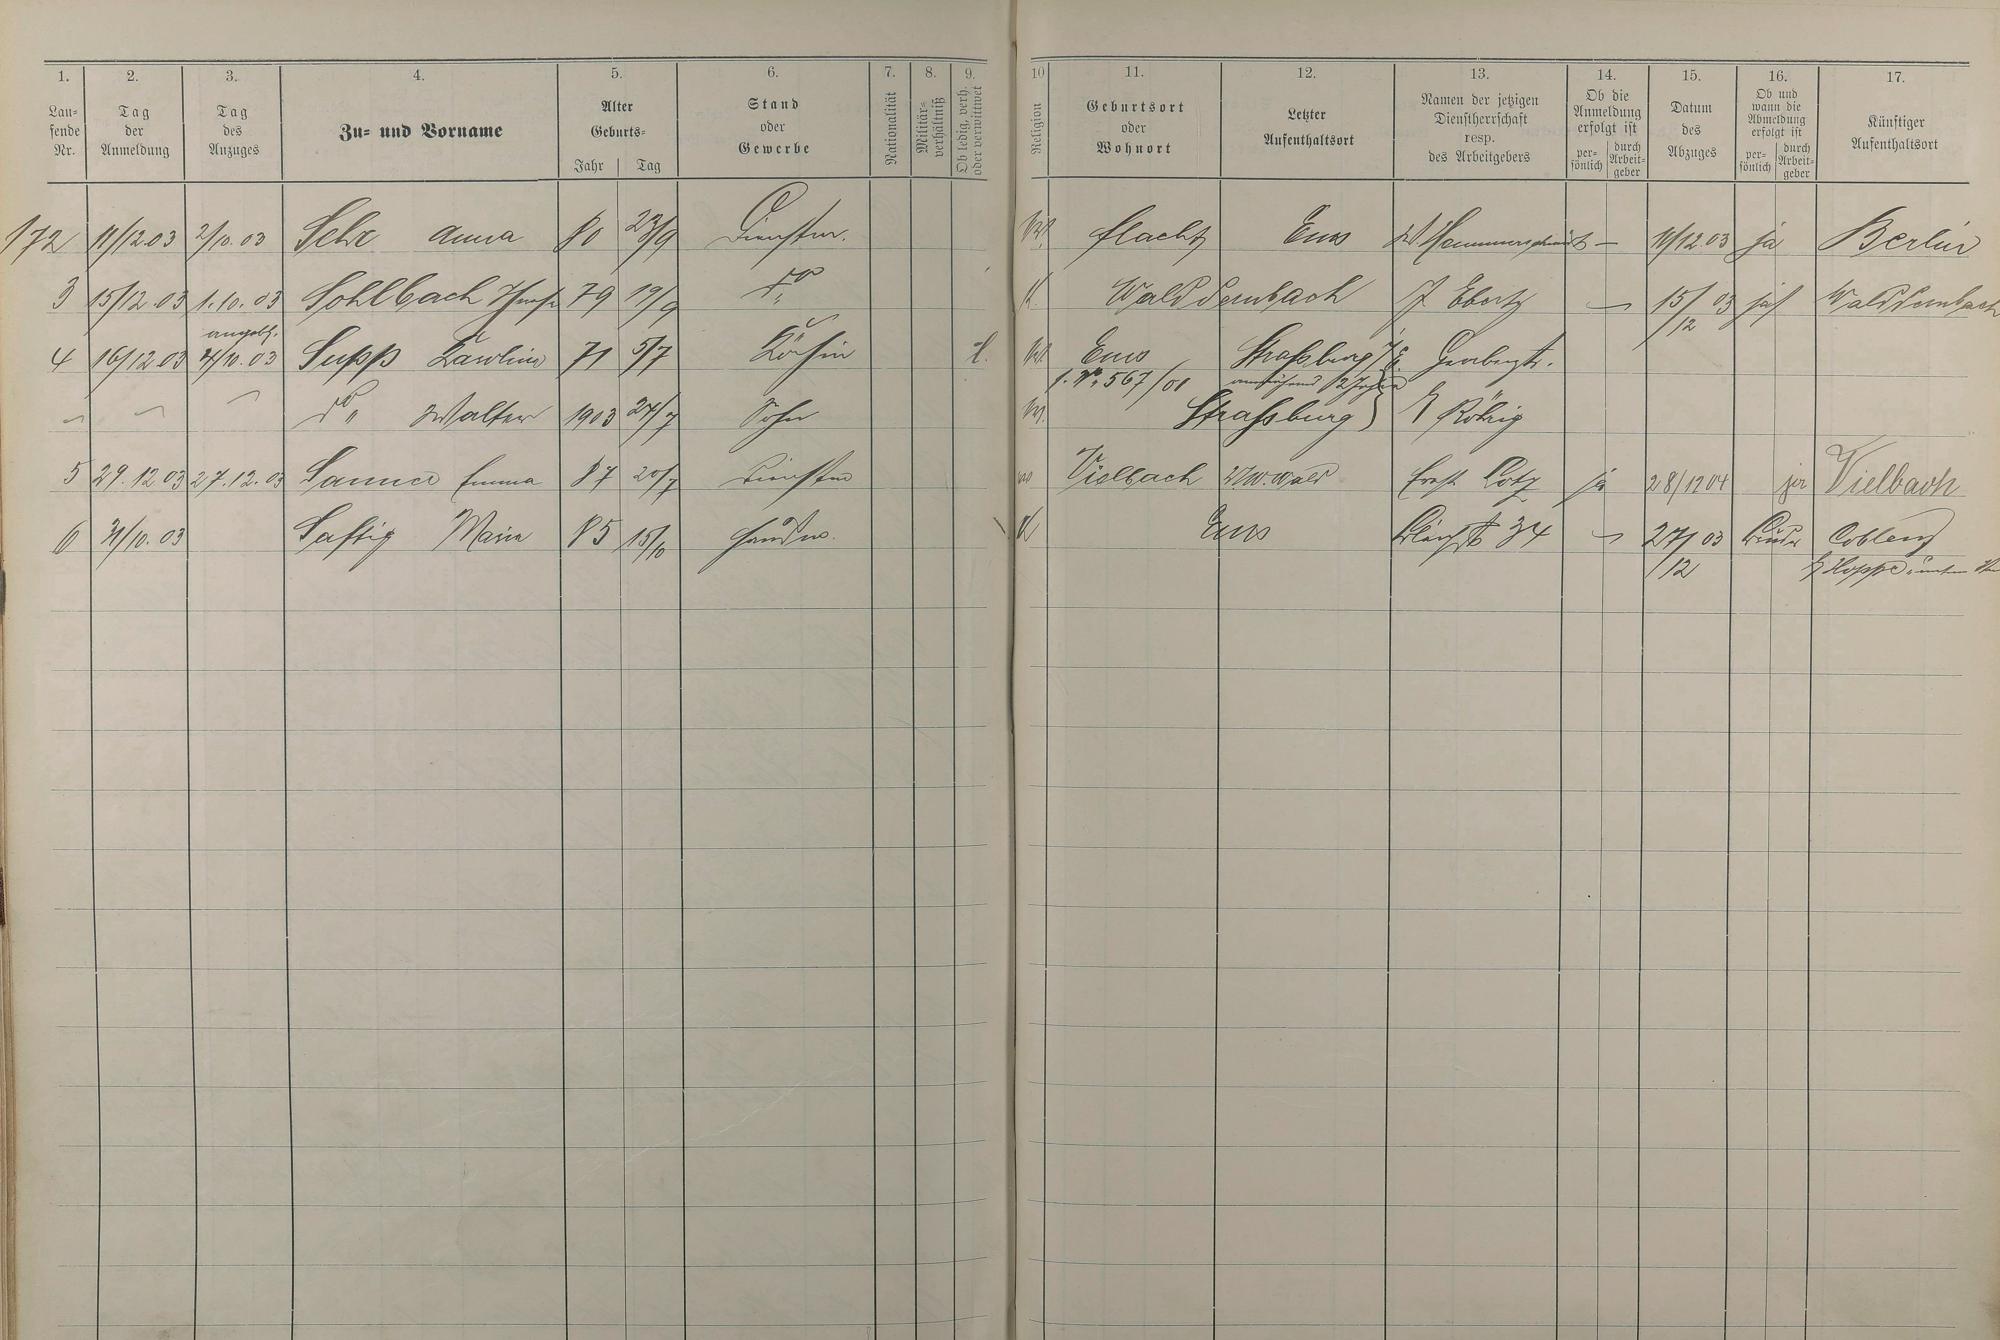 1. 2. 3. 4. 5. 6. 7. 8. 9. 10 11. 12. 13. 14. 15. 16. 17.
Lau-
fende
Nr.
Tag
der
Anmeldung
Tag
des
Anzuges
Zu- und Vorname
Alter
Geburts-
Jahr Tag
Stand
oder
Gewerbe
Nationalität
Militär-
verhältniß
Ob ledig, verh.
oder verwittwet
Religion
Geburtsort
oder
Wohnort
Letzter
Aufenthaltsort
Namen der jetzigen
Dienstherrschaft
resp.
des Arbeitgebers
Ob die
Anmeldung
erfolgt ist
per-
sönlich
durch
Arbeit-
geber
Datum
des
Abzuges
Ob und
wann die
Abmeldung
erfolgt ist
per-
sönlich
durch
Arbeit-
geber
Künftiger
Aufenthaltsort
172 11/12.03 2/10.03 Sehr Anna 80 23/9 Flacht Ems — 11/12.03 ja Berlin
3 15/12.03 1.10.03 Sohlbach 79 19/9 do K. Walddernbach J. Ebertz 15/12 03 ja Walddernbach
4 16/12.03 4/10.03 Supp Karoline 71 5/7 Köchin l. Ems Straßburg
567/01
do Walter 1903 24/7 Sohn Straßburg Röhrig
5 29.12.03 27.12.03 Emma 87 20/7 Vielbach Ernst Lotz ja 28/12 04 ja Vielbach
6 31/10.03 Saftig Maria 85 15/10 K Ems 34 27/12 03 Coblenz